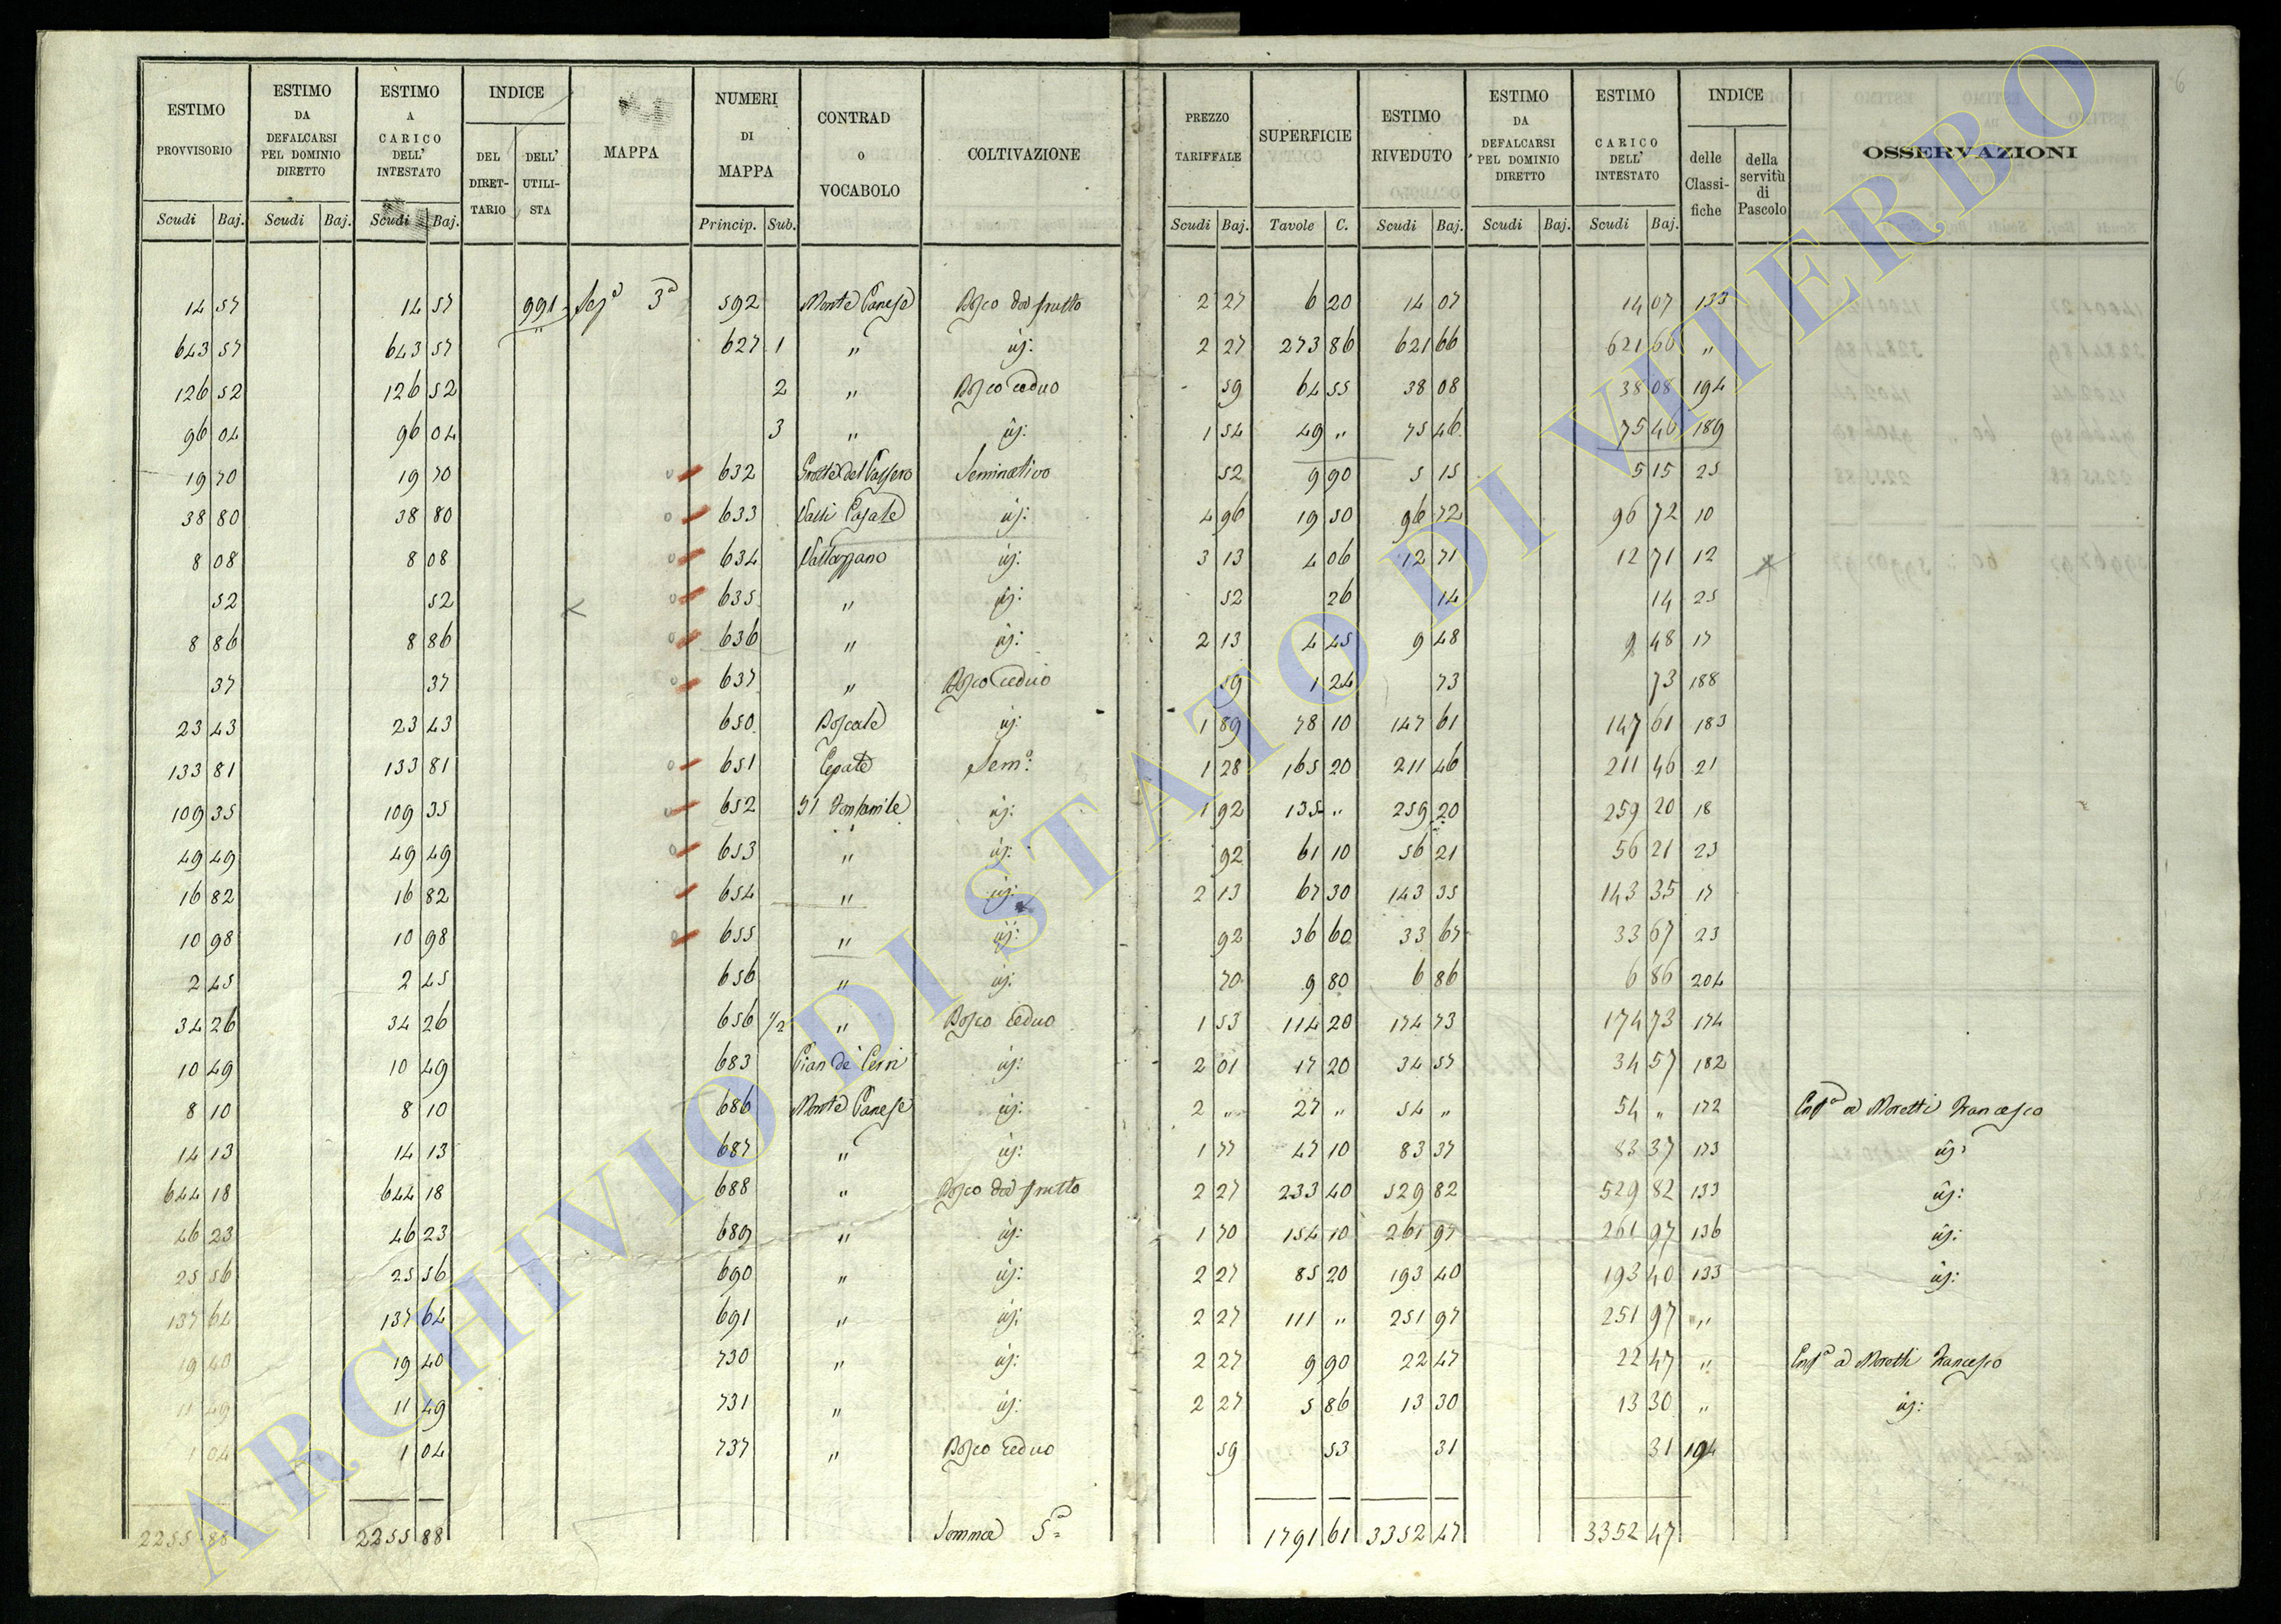 ESTIMO PROVVISORIO | ESTIMO DA DEFALCARSI PEL DOMINIO DIRETTO | ESTIMO A CARICO DELL' INTESTATO | INDICE | MAPPA | NUMERI DI MAPPA | CONTRAD O VOCABOLO | COLTIVAZIONE | PREZZO TARIFFALE | SUPERFICIE | ESTIMO RIVEDUTO | ESTIMO DA DEFALCARSI PEL DOMINIO DIRETTO | ESTIMO CARICO DELL' INTESTATO | INDICE | OSSERVAZIONI
DEL DIRETTARIO | DELL' UTILISTA | delle Classifiche | della servitù di Pascolo
Scudi | Baj. | Scudi | Baj. | Scudi | Baj. | Princip. | Sub. | Scudi | Baj. | Tavole | C. | Scudi | Baj. | Scudi | Baj. | Scudi | Baj.
14 57 | 14 57 | 991 | Sezª 3ª | 592 | Monte Panese | Bosco da frutto | 2 27 | 6 20 | 14 07 | 14 07 | 133
643 57 | 643 57 | 627 1 | " | id: | 2 27 | 273 86 | 621 66 | 621 66 | "
126 52 | 126 52 | 2 | " | Bosco ceduo | 59 | 64 55 | 38 08 | 38 08 | 194
96 04 | 96 04 | 3 | " | id: | 1 54 | 49 " | 75 46 | 75 46 | 189
19 70 | 19 70 | 632 | Seminativo | 52 | 9 90 | 5 15 | 5 15 | 25
38 80 | 38 80 | 633 | Valli Casale | id: | 4 96 | 19 50 | 96 72 | 96 72 | 10
8 08 | 8 08 | 634 | id: | 3 13 | 4 06 | 12 71 | 12 71 | 12
52 | 52 | 635 | " | id: | 52 | 26 | 14 | 14 | 25
8 86 | 8 86 | 636 | " | id: | 2 13 | 4 45 | 9 48 | 9 48 | 17
37 | 37 | 637 | " | Bosco ceduo | 59 | 1 24 | 73 | 73 | 188
23 43 | 23 43 | 650 | id: | 1 89 | 78 10 | 147 61 | 147 61 | 183
133 81 | 133 81 | 651 | Semº: | 1 28 | 165 20 | 211 46 | 211 46 | 21
109 35 | 109 35 | 652 | id: | 1 92 | 135 " | 259 20 | 259 20 | 18
49 49 | 49 49 | 653 | " | id: | 92 | 61 10 | 56 21 | 56 21 | 23
16 82 | 16 82 | 654 | " | id: | 2 13 | 67 30 | 143 35 | 143 35 | 17
10 98 | 10 98 | 655 | " | id: | 92 | 36 60 | 33 67 | 33 67 | 23
2 45 | 2 45 | 656 | " | id: | 70 | 9 80 | 6 86 | 6 86 | 204
34 26 | 34 26 | 656 1/2 | " | Bosco ceduo | 1 53 | 114 20 | 174 73 | 174 73 | 174
10 49 | 10 49 | 683 | Pian de Cerri | id: | 2 01 | 17 20 | 34 57 | 34 57 | 182
8 10 | 8 10 | 686 | Monte Panese | id: | 2 " | 27 " | 54 " | 54 " | 172 | ad Moretti Francesco
14 13 | 14 13 | 687 | " | id: | 1 77 | 47 10 | 83 37 | 83 37 | 173 | id:
644 18 | 644 18 | 688 | " | Bosco da frutto | 2 27 | 233 40 | 529 82 | 529 82 | 133 | id:
46 23 | 46 23 | 689 | " | id: | 1 70 | 154 10 | 261 97 | 261 97 | 136 | id:
25 56 | 25 56 | 690 | " | id: | 2 27 | 85 20 | 193 40 | 193 40 | 133 | id:
137 64 | 137 64 | 691 | " | id: | 2 27 | 111 " | 251 97 | 251 97 | "
19 40 | 19 40 | 730 | " | id: | 2 27 | 9 90 | 22 47 | 22 47 | " | a Moretti Francesco
11 49 | 11 49 | 731 | " | id: | 2 27 | 5 86 | 13 30 | 13 30 | " | id:
1 04 | 1 04 | 737 | " | Bosco ceduo | 59 | 53 | 31 | 31 | 194
2255 88 | 2255 88 | Somma 5ª | 1791 61 | 3352 47 | 3352 47
ARCHIVIO DI STATO DI VITERBO